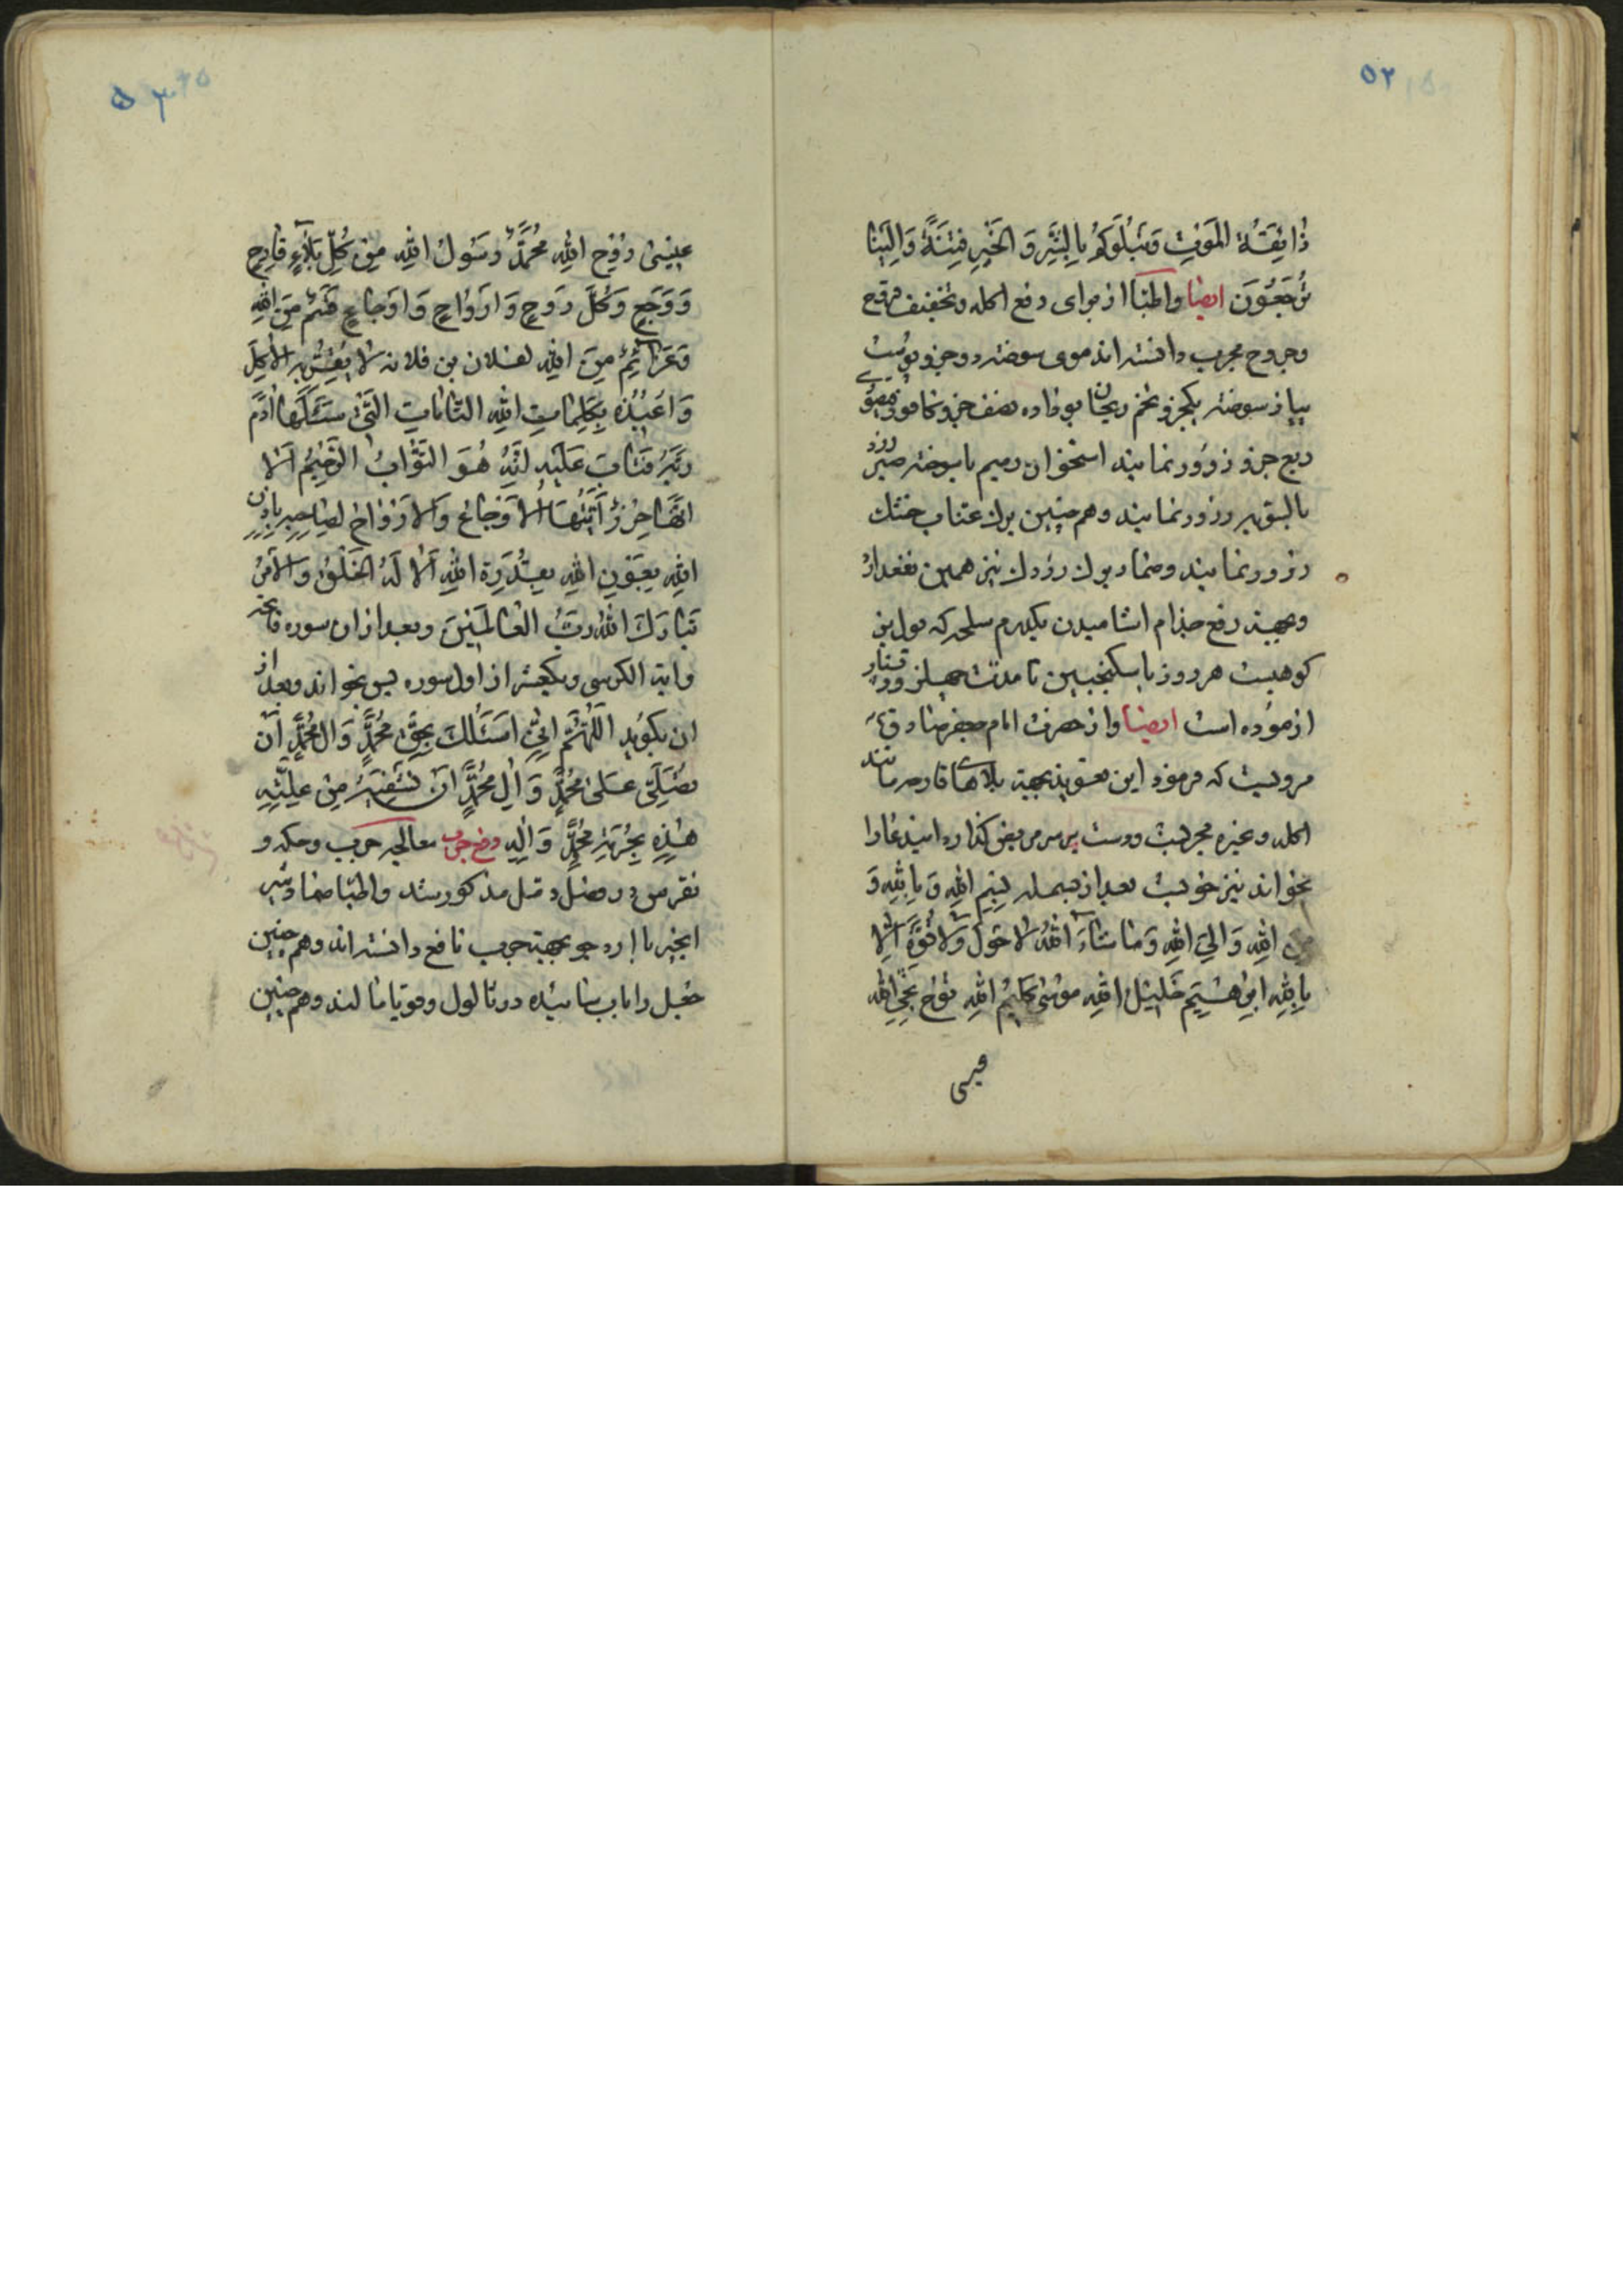 ٥٢
ذٰائِقَةُ الْمَوْتِ وَنَبْلُوَكُمْ بِالشَّرِّ وَ الْخَيْرِ فِتْنَةً وَاِلَيْنٰا
تُرْجَعُوُنَ ايضا واطبّا از براى دفع اكله وتخفيف قرح
وجروح مجرب دانسته اند موى سوخته دو جزو پوست
پياز سوخته يكجزو تخم ريحان بو داده نصف جزو
ربع جزو ذرور نمايند استخوان رميم يا سوخته
ذرور نمايند وهم چنين برك عناب خشك
ذرور نمايند وضماد برك نيز همين نفع دارد
وبجهة دفع جذام اشاميدن يكدرم كه بول بز
كوهيست هر روز با سكنجبين تا مدت چهل روز
ازموده است ايضا واز حضرت امام جعفر صادق ع
مرويست كه فرمود اين تعويذ بجهة بلاهاى قادحه مانند
اكله وغيره مجربست ودست بر سر مريض كذارد اينرا
بخواند نيز خوبست بعد از بسمله بِسْمِ اللّٰهِ وَ بِاللّٰهِ وَ
مِنَ اللّٰهِ وَ اِلَى اللّٰهِ وَ مٰا شٰاءَ اللّٰهُ لاٰ حَوْلَ وَلاٰ قُوَّةَ اِلاّٰ
بِاللّٰهِ اِبْرٰهيمُ خَليلُ اللّٰهِ مُوسٰى كَليمُ اللّٰهِ نوُحٌ نَجِىُّ اللّٰهِ
عيسى
٥٣
عيسٰى رُوُحُ اللّٰهِ مُحَمَّدٌ رَسُولُ اللّٰهِ مِنْ كُلِّ بَلاٰءٍ قٰادِحٍ
وَ وَجَعٍ وَ كُلِّ رَوْحٍ وَ اَرْوٰاحٍ وَ اَوْجٰاعٍ قَسَمٌ مِنَ اللّٰهِ
وَ عَزٰائِمُ مِنَ اللّٰهِ لفلان بن فلانه لاٰ يَقْرَبُهُ الاٰكِلَةُ
وَ اُعيذُهُ بِكَلِمٰاتِ اللّٰهِ التّٰامّٰاتِ الَّتى سَئَلَهٰا اٰدَمُ
رَبَّهُ فَتٰابَ عَلَيْهِ اِنَّهُ هُوَ التَّوّٰابُ الرَّحيمُ اَلاٰ
اِنَّهٰا حِرْزٌ اَيَّتُهَا الْاَوْجٰاعُ وَالْاَرْوٰاحُ لِصٰاحِبِهِ بِاِذْنِ
اللّٰهِ بِعَوْنِ اللّٰهِ بِقُدْرَةِ اللّٰهِ اَلاٰ لَهُ الْخَلْقُ وَ الْاَمْرُ
تَبٰارَكَ اللّٰهُ رَبُّ الْعٰالَمينَ وبعد از ان سوره فاتحه
واية الكرسى ويكعشر از اول سوره يس بخواند وبعد از
ان بكويد اَللّٰهُمَّ اِنّى اَسْئَلُكَ بِحَقِّ مُحَمَّدٍ وَ اٰلِ مُحَمَّدٍ اَنْ
تُصَلِّىَ عَلٰى مُحَمَّدٍ وَ اٰلِ مُحَمَّدٍ اَنْ تَشْفِيَهُ مِنْ عِلَّتِهِ
هٰذِهِ بِحُرْمَةِ مُحَمَّدٍ وَ اٰلِهِ دفع جرب معالجه جرب وحكه و
نقرس در فصل قبل مذكور شد واطبّا ضماد شير
انجير با ارد جو بجهة جرب نافع دانسته اند وهم چنين
را باب سائيده در وقوبا مالند وهم چنين